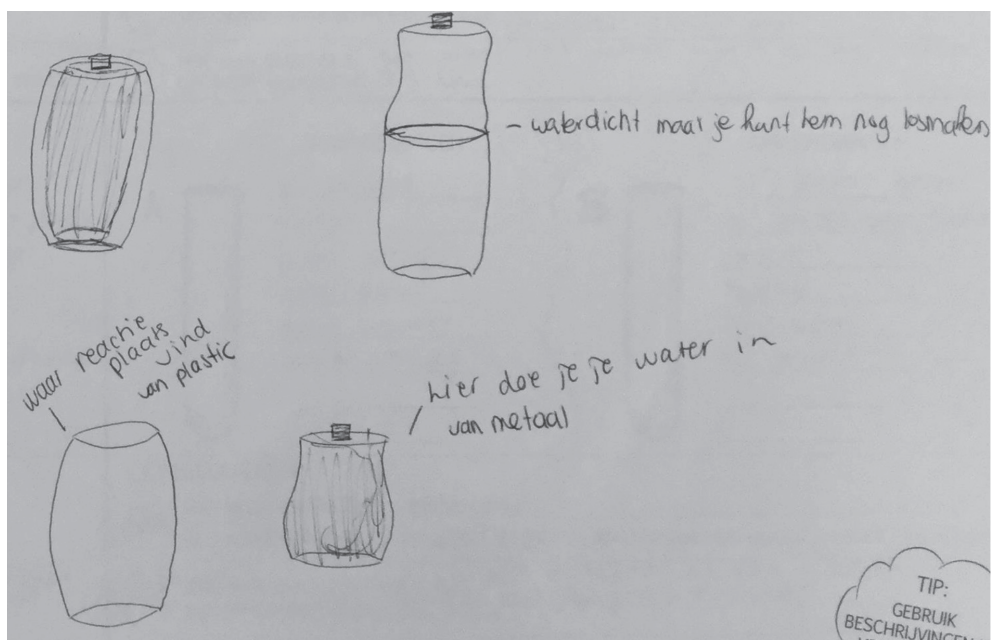 - waterdicht maar je kunt hem nog losmaken
waar reactie
plaats
vind
van plastic
hier doe je je water in
van metaal
TIP:
GEBRUIK
BESCHRIJVINGEN